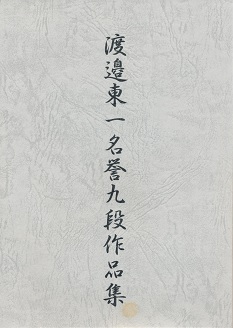 渡邉東一名誉九段作品集